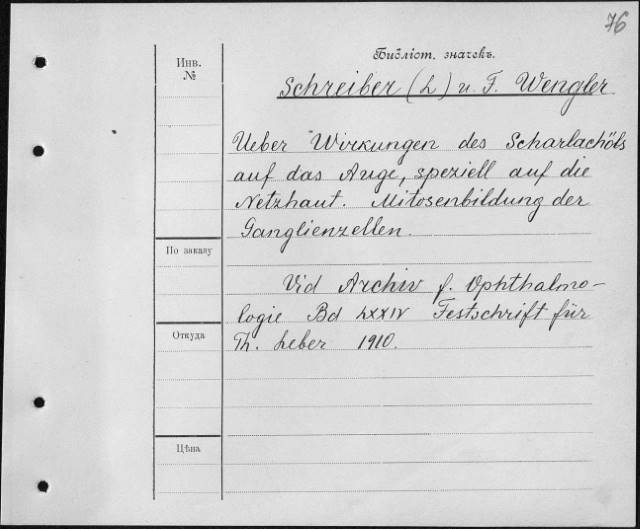 76
Инв.
№
Библіот. значекъ.
Schreiber (L) u. F. Wengler
Ueber Wirkungen des Scharlachöls
auf das Auge, speziell auf die
Netzhaut. Mitosenbildung der
Ganglienzellen.
По заказу
Vid Archiv f. Ophthalmo-
logie Bd LXXIV Festschrift für
Откуда
Th. Leber 1910.
Цѣна